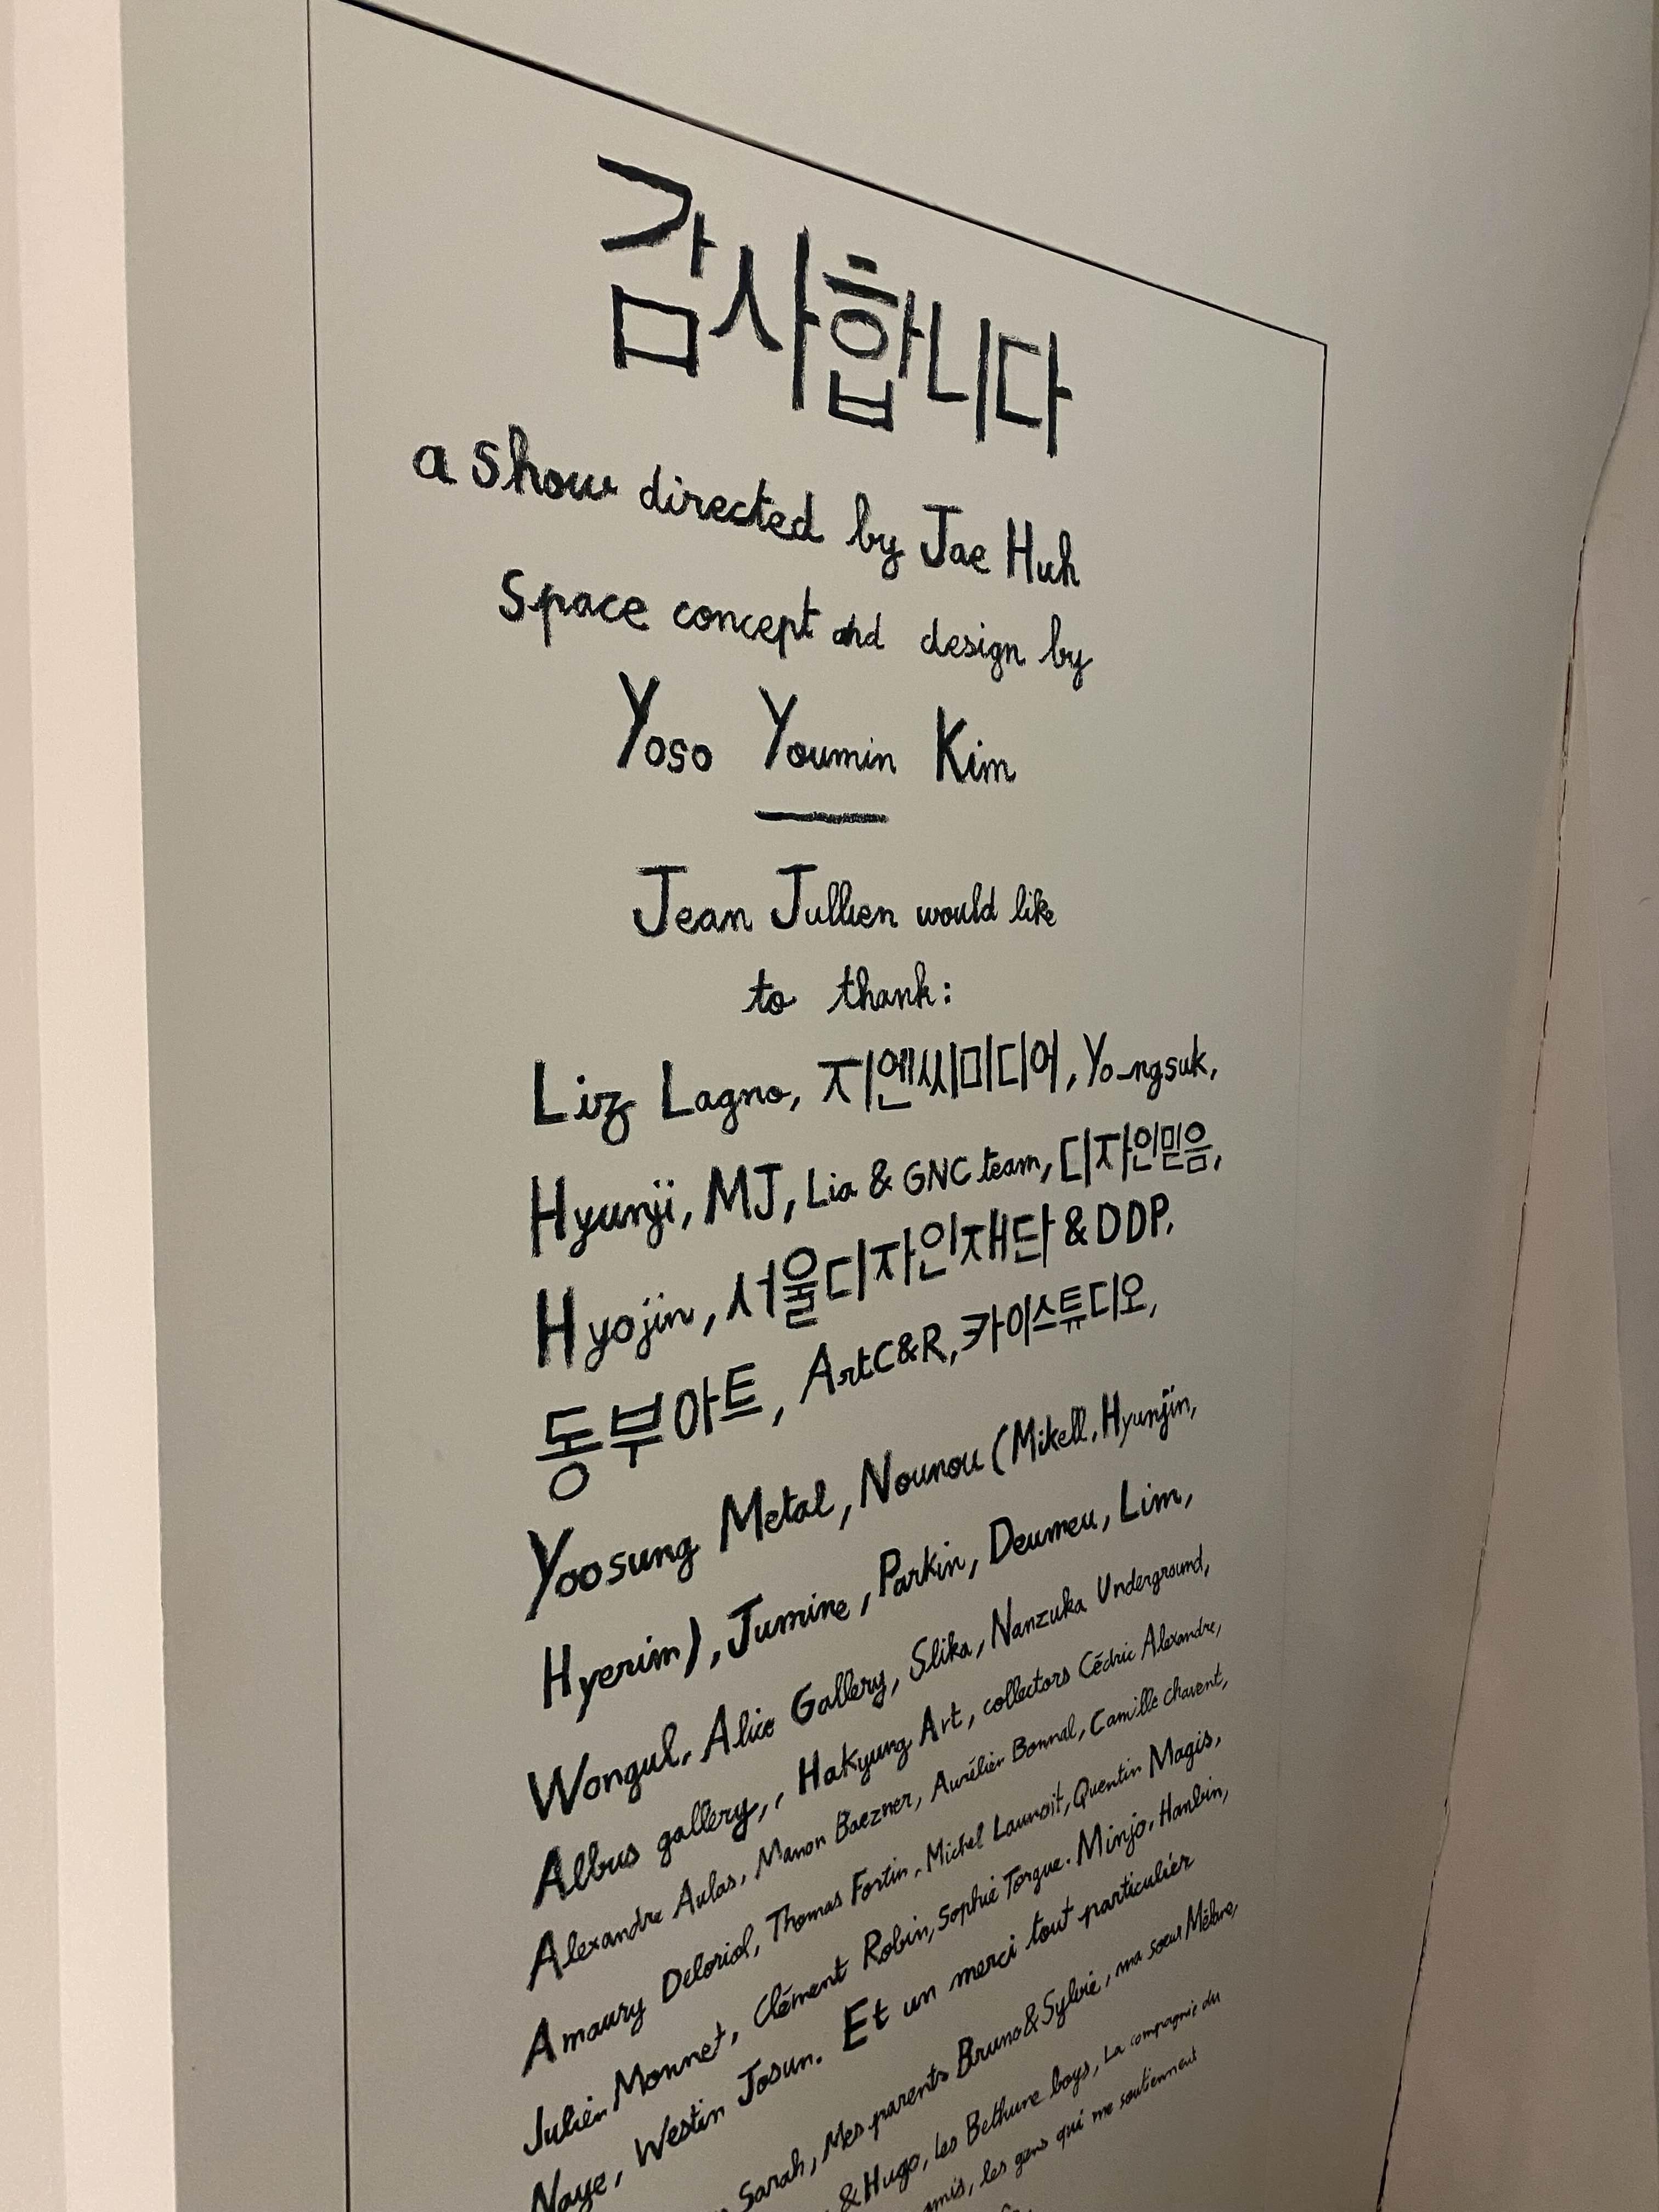 감사합니다
a show directed by Jae Huh
Space concept and design by
Yoso Youmin Kim
Jean Jullien would like
to thank:
Liz Lagno, 지엔씨미디어, Yo-ngsuk,
Hyunji, MJ, Lia & GNC team, 디자인믿음,
Hyojin, 서울디자인재단 & DDP,
동부아트, ArtC&R, 카이스튜디오,
Yoosung Metal, Nounou (Mikell, Hyunjin,
Hyerim), Jumine, Parkin, Deumeu, Lim,
Wongul, Alice Gallery, Slika, Nanzuka Underground,
Albus gallery,, Hakyung Art, collectors Cédric Alexandre,
Alexandre Aulas, Manon Baezner, Aurélien Bonnal, Camille Chavent,
Amaury Deloriol, Thomas Fortin, Michel Launoit, Quentin Magis,
Julien Monnet, Clément Robin, Sophie Torgue. Minjo, Hanbin,
Naye, Westin Josun. Et un merci tout particulier
Sarah, Mes parents Bruno & Sylvie, ma soeur Mélane,
& Hugo, les Bethune boys, La compagnie du
amis, les gens qui me soutiennent